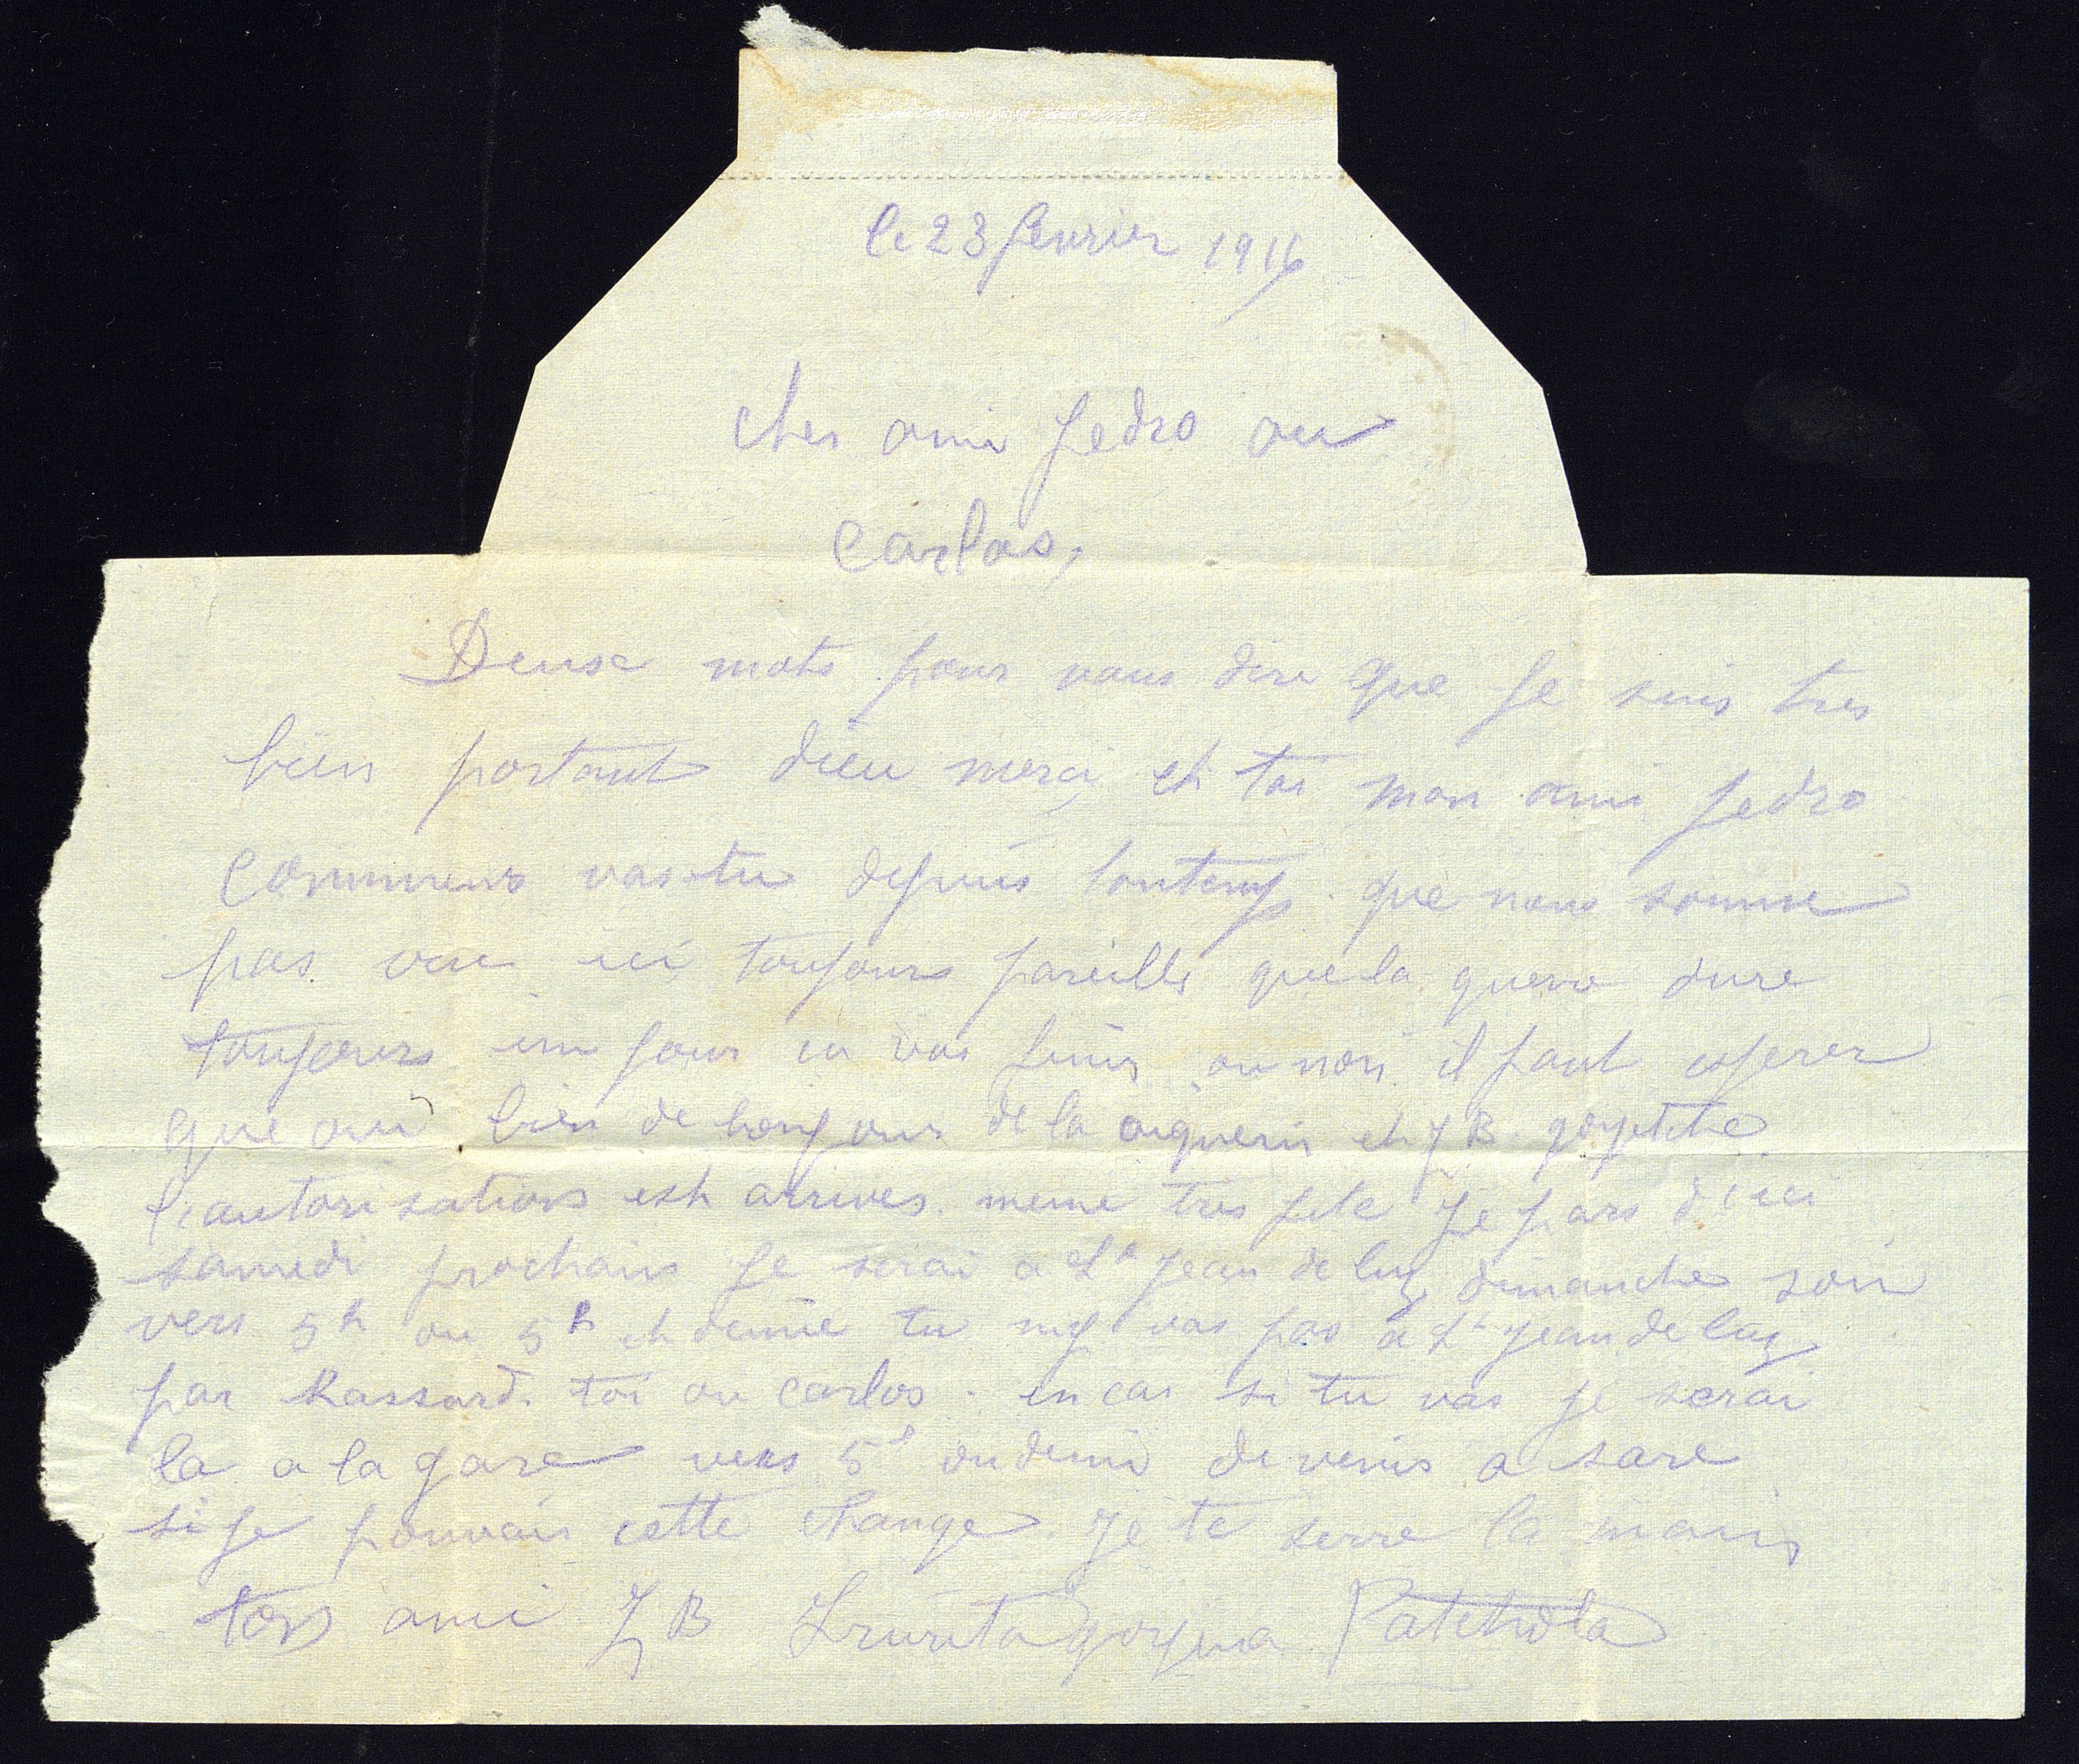 le 23 fevrier 1916
cher ami Pedro ou
Carlos,
Deux mots pour vous dire que je suis tres
bien portant dieu merci, et toi mon ami Pedro
commens vas-tu depuis lontemp. que nous somme
pas vu ici toujours pareille que la guerre dure
toujours un jour ca vas finir ou non il faut esperer
que oui bien de bonjour de la et J B. goyetche
l'autorisations est arrives. meme tres Je pars d'ici
samedi prochain je serai a St Jean de luz dimanche soir
vers 5h ou 5h et demie tu my vas pas a St Jean de luz
par toi ou carlos. en cas si tu vas je serai
la a la gare vers 5h ou demi de venir a sare
si je pouvais cette change. Je te serre la main
ton ami J B Patchola